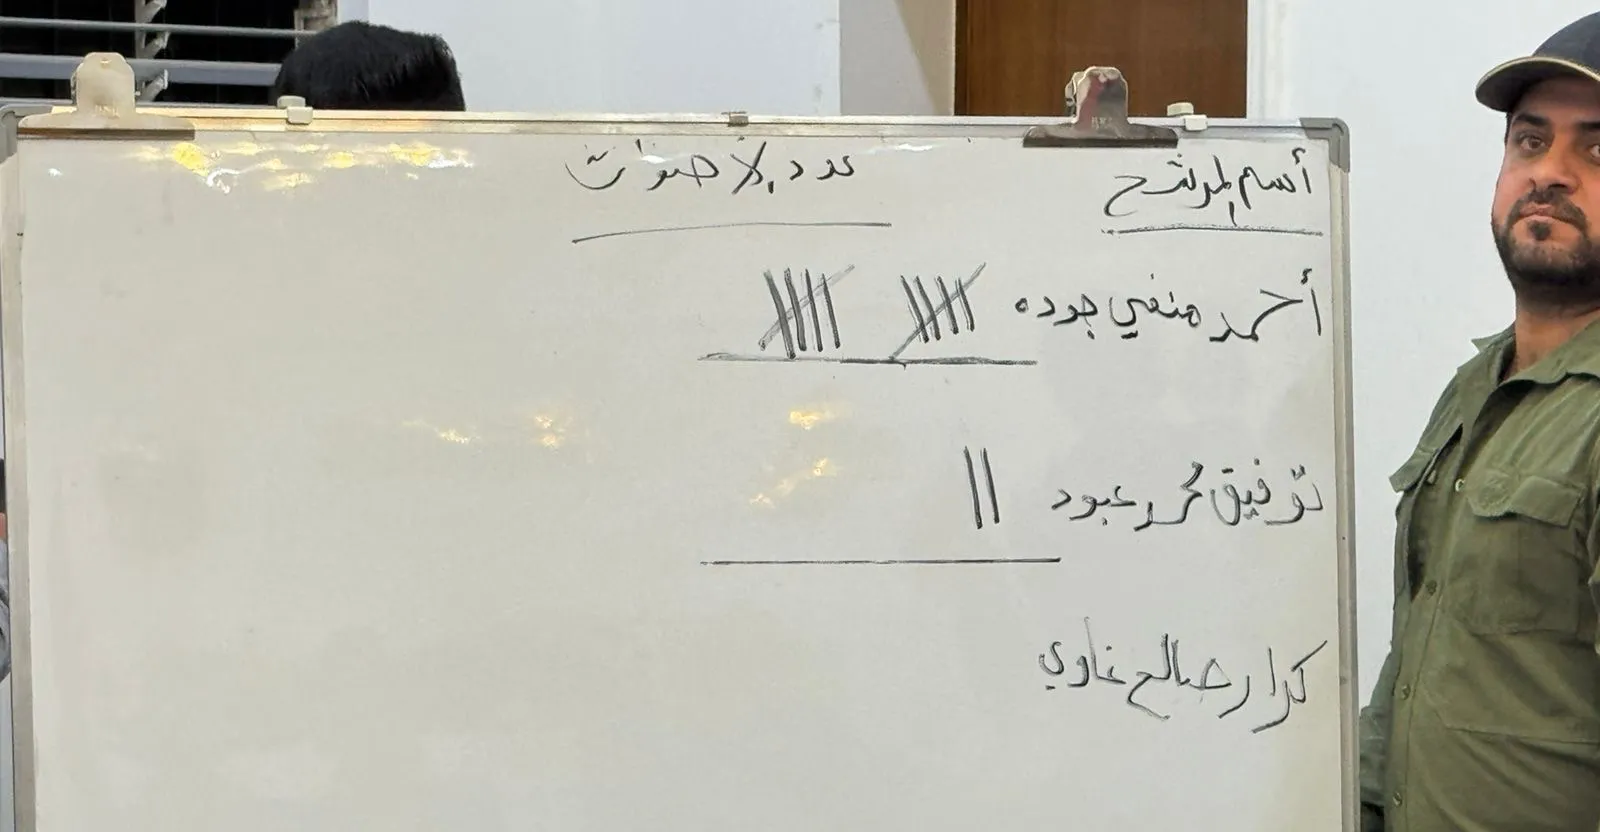 أسم المرشح عدد الأصوات
أحمد منفي جوده
توفيق محمد عبود
كرار صالح غاوي